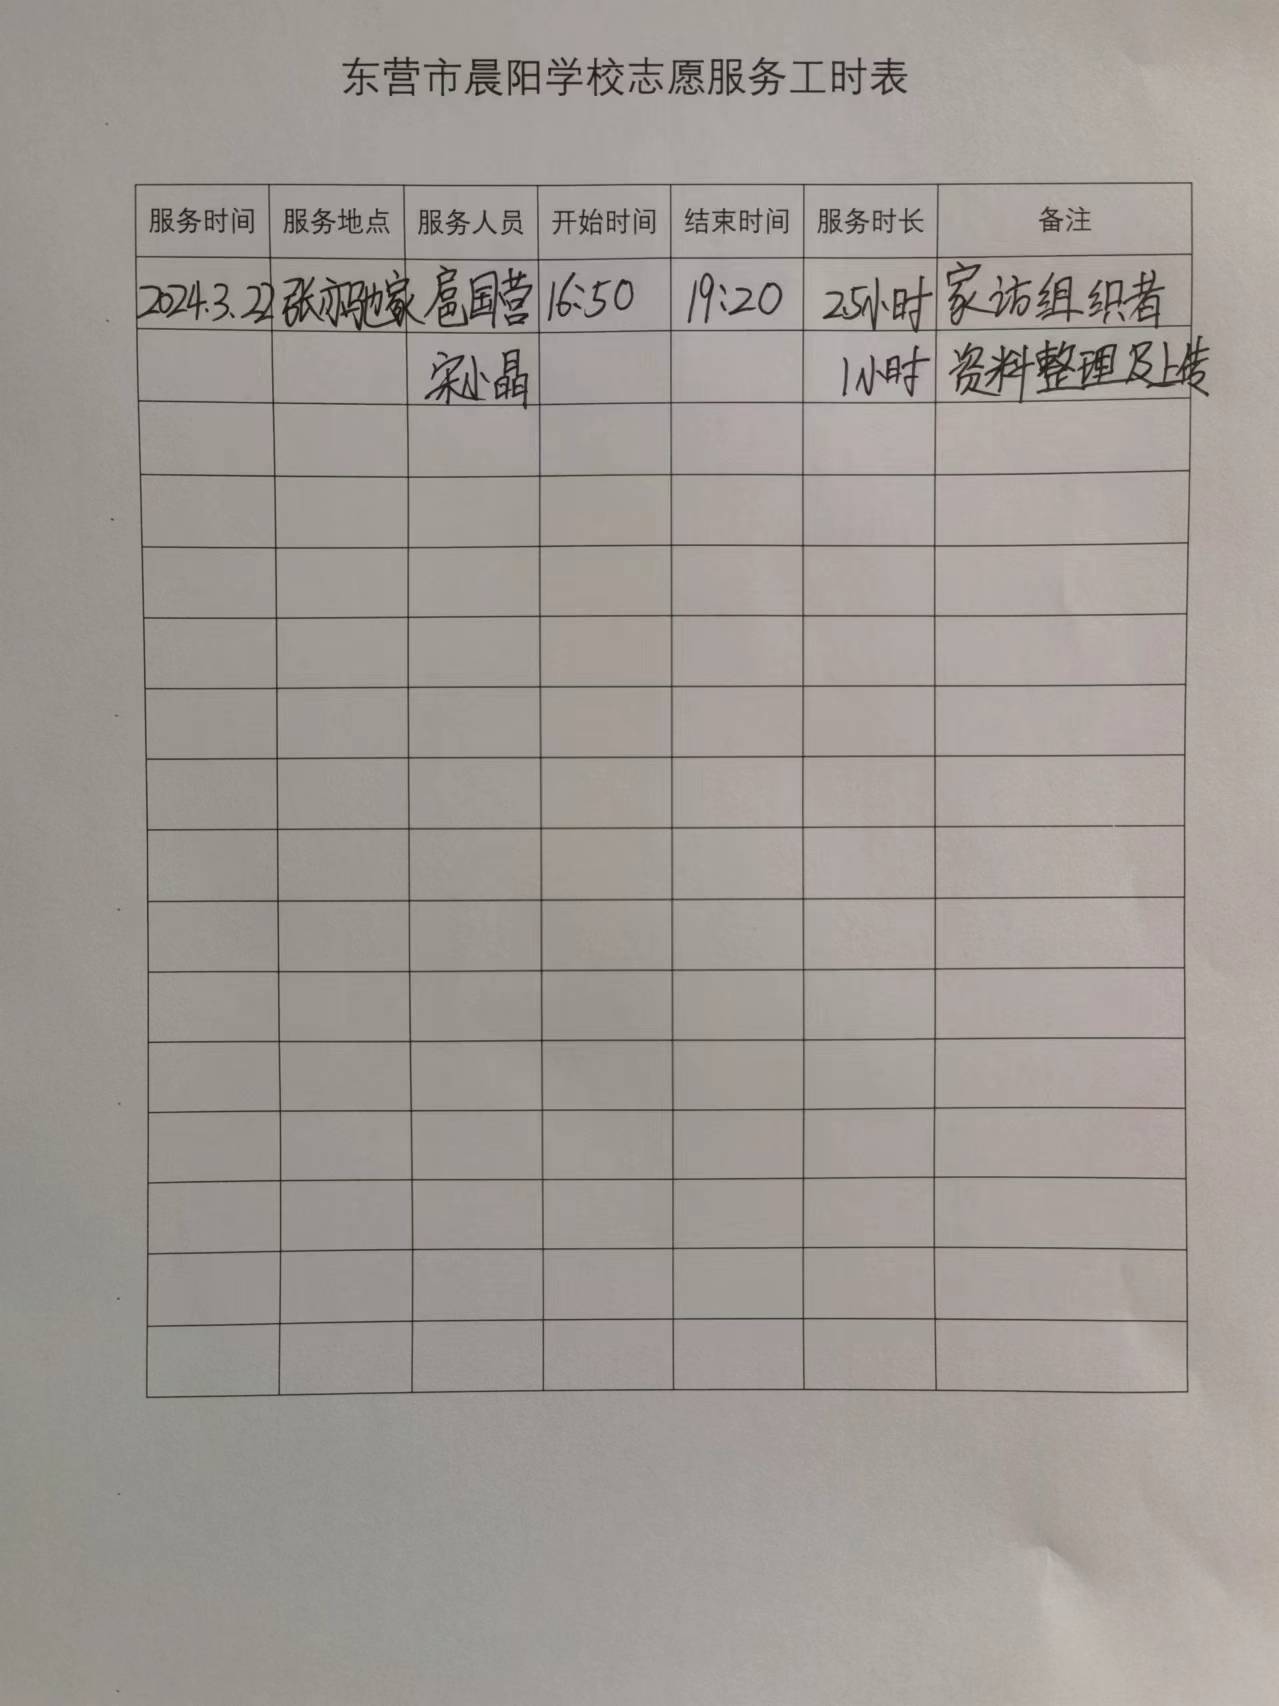 东营市晨阳学校志愿服务工时表
服务时间 服务地点 服务人员 开始时间 结束时间 服务时长 备注
2024.3.22 张亦驰家 扈国营 16:50 19:20 2.5小时 家访组织者
宋小晶 1小时 资料整理及上传